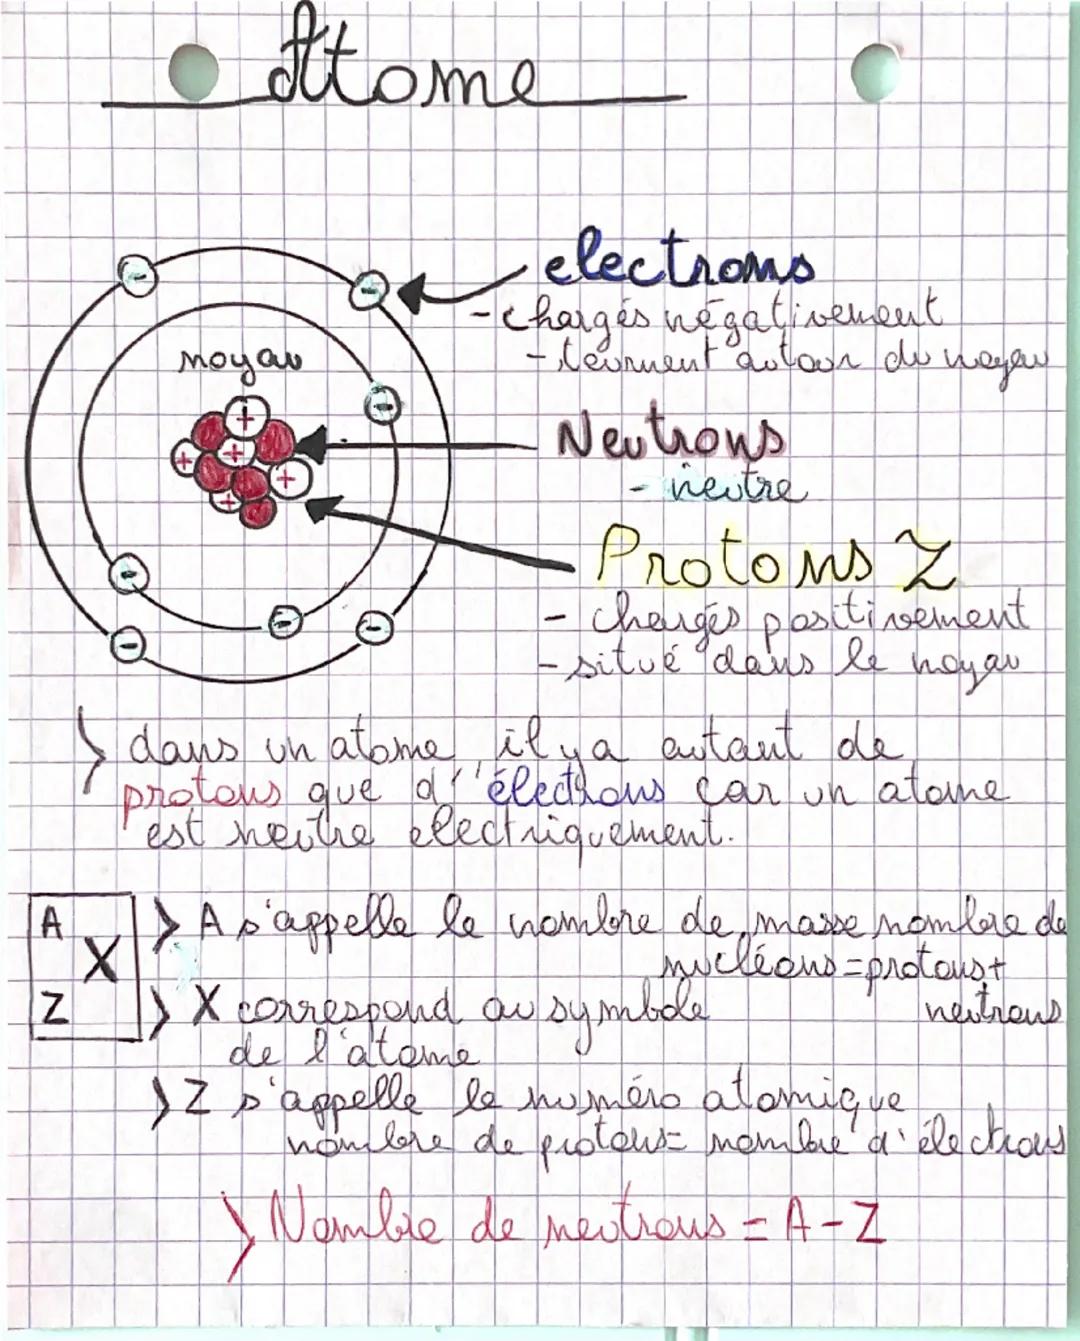 Atome
electrons
- chargés négativement
- tournent autour du noyau
noyau
Neutrons
- neutre
Protons Z
- chargés positivement
- situé dans le noyau
> dans un atome, il y a autant de
protons que d'électrons car un atome
est neutre electriquement.
A
X
Z
> A s'appelle le nombre de masse nombre de
nucléons = protons +
neutrons
> X correspond au symbole
de l'atome
> Z s'appelle le numéro atomique
nombre de protons = nombre d'électrons
> Nombre de neutrons = A - Z